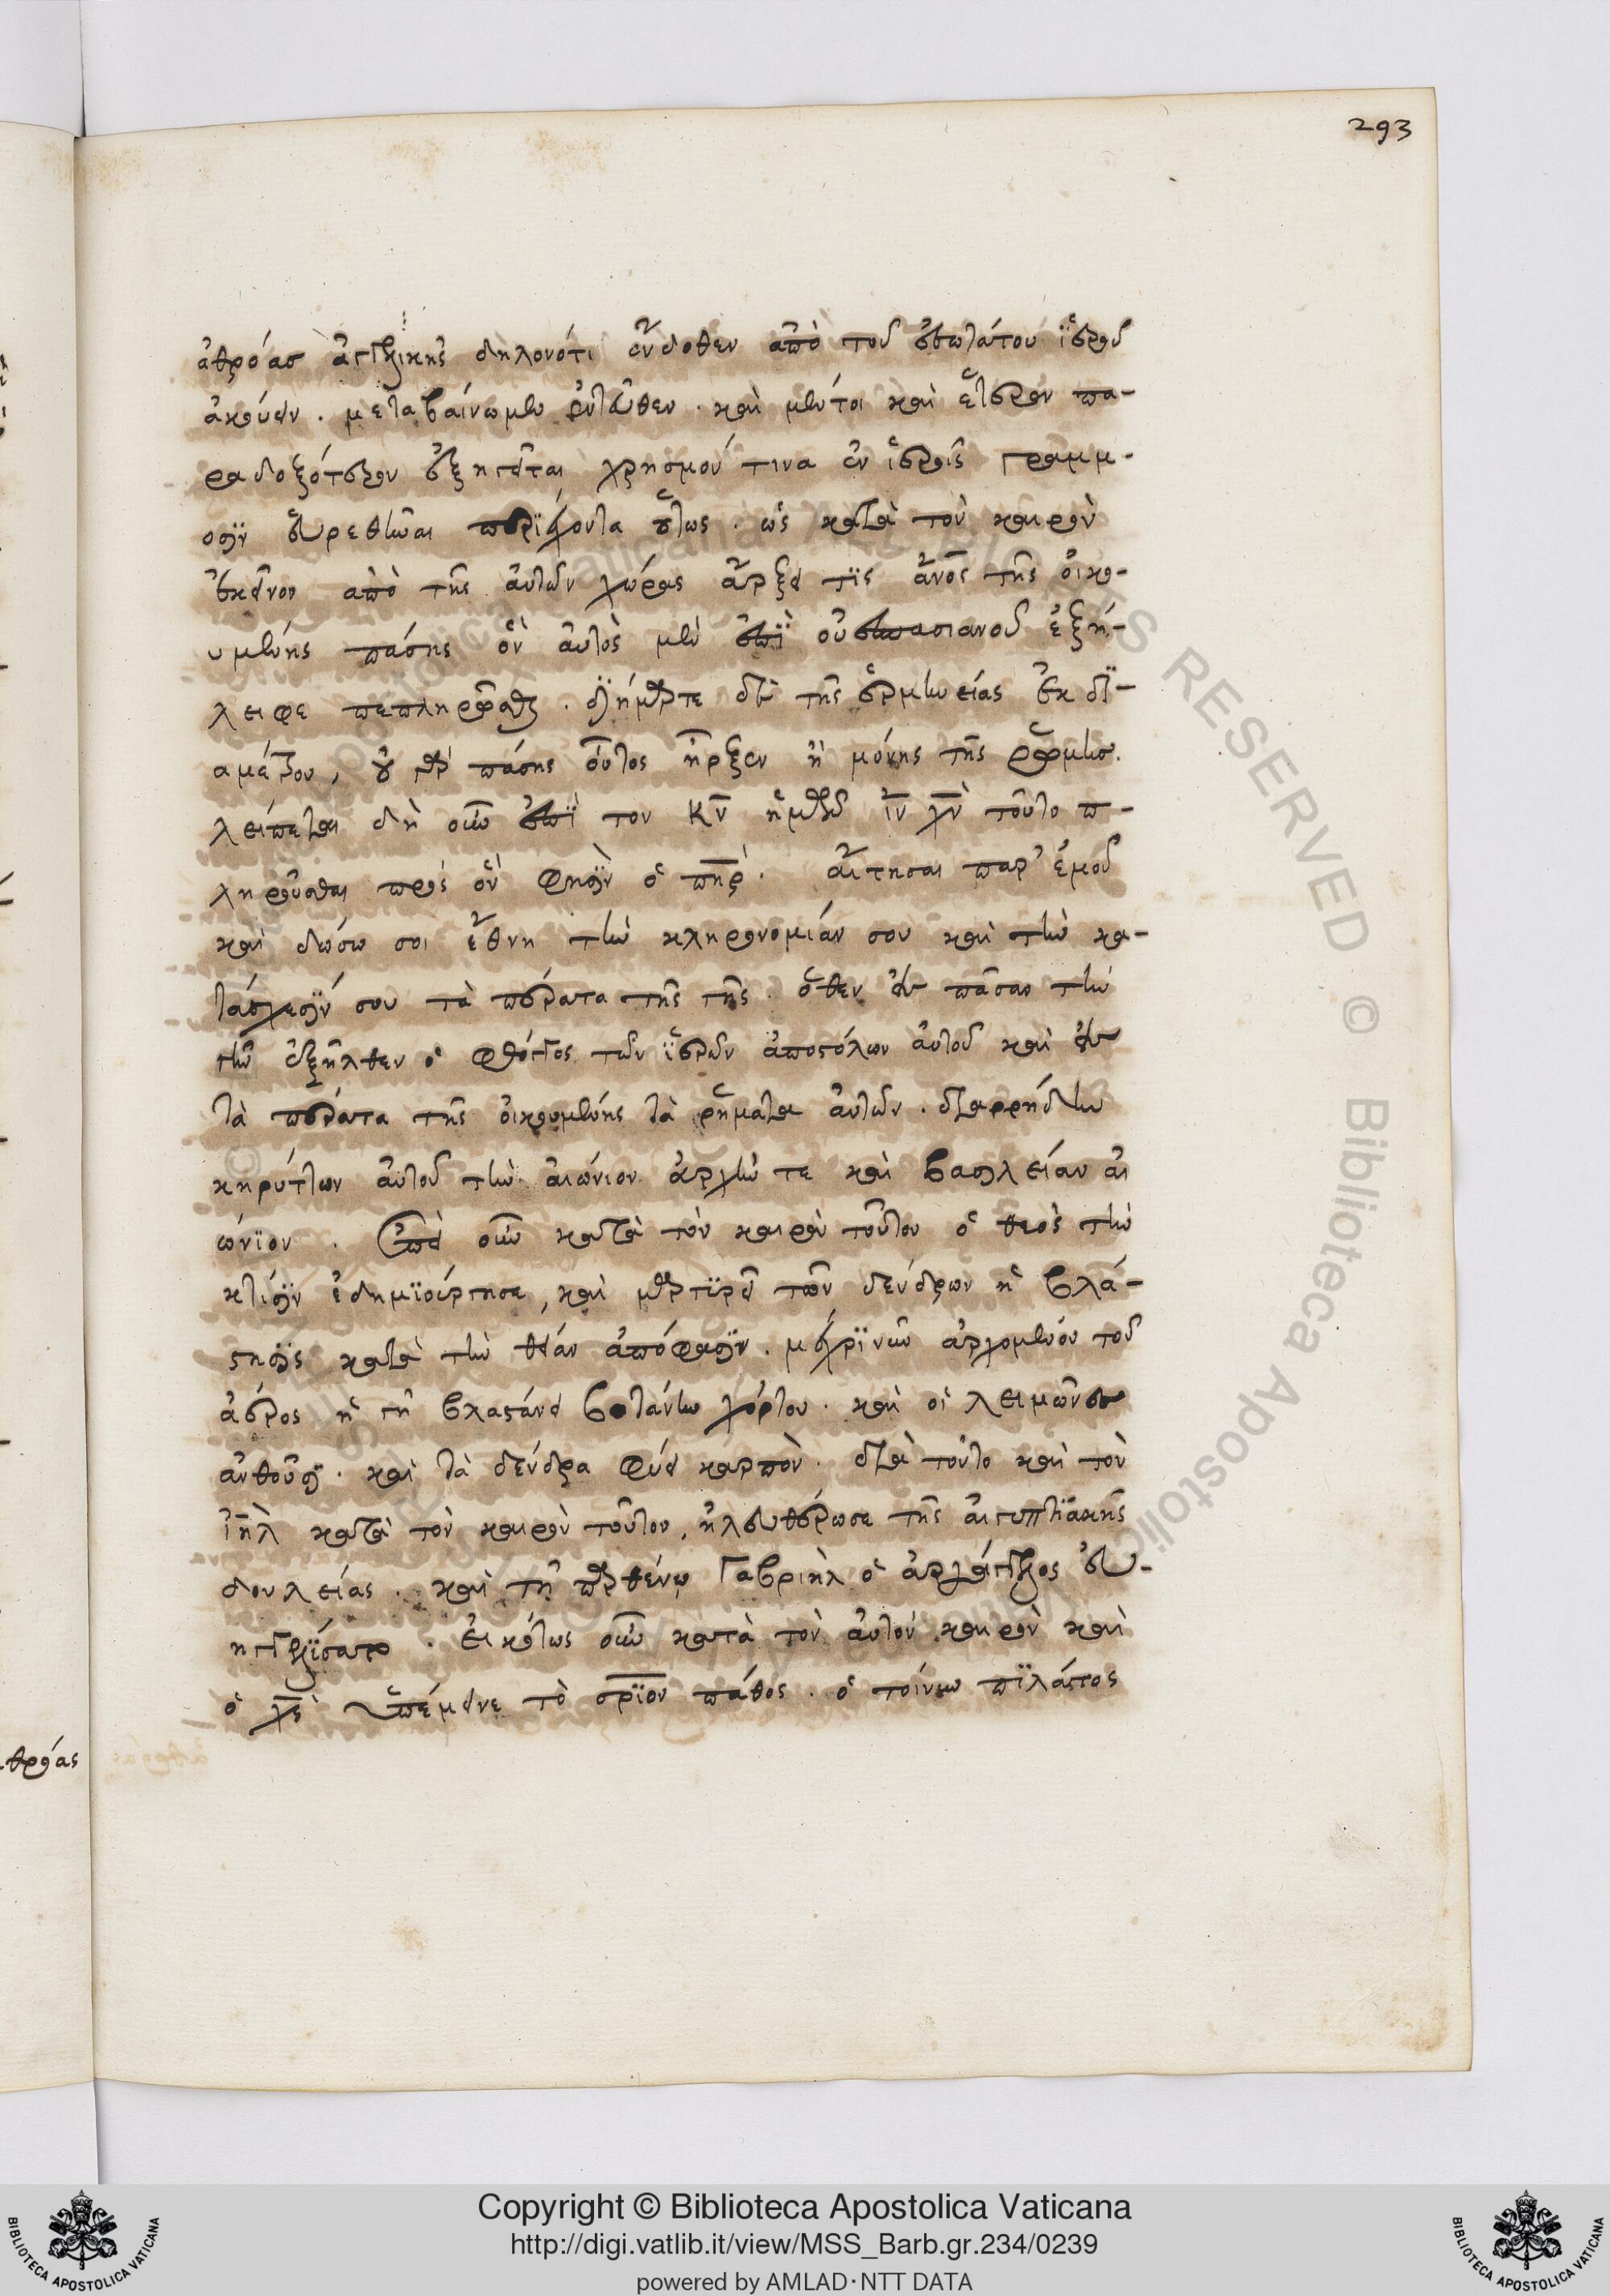 293
ἀθρόας ἀγγελικῆς δηλονότι ἔνδοθεν ἀπὸ τοῦ ἐσωτάτου ἱεροῦ
ἀκούειν. μεταβαίνωμεν ἐντεῦθεν. καὶ μέντοι καὶ ἕτερον πα-
ραδοξότερον ἐξηγεῖται χρησμόν τινα ἐν ἱεροῖς γράμμ-
ασιν εὑρεθῆναι περιέχοντα οὕτως. ὡς κατὰ τὸν καιρὸν
ἐκεῖνον ἀπὸ τῆς αὐτῶν χώρας ἄρξει τις ἄνος τῆς οἰκο-
υμένης πάσης ὃν αὐτὸς μὲν ἐπὶ οὐεσπασιανοῦ ἐξεί-
ληφε πεπληρῶσθαι.
ἀλλ' οὐ πάσης οὗτος ἦρξεν ἢ μόνης τῆς
λείπεται δὴ οὖν ἐπὶ τὸν κν ἡμῶν ιν χν τοῦτο π-
ληροῦσθαι πρὸς ὃν φησὶν ὁ πηρ. αἴτησαι παρ' ἐμοῦ
καὶ δώσω σοι ἔθνη τὴν κληρονομίαν σου καὶ τὴν κα-
τάσχεσίν σου τὰ πέρατα τῆς γῆς. ὅθεν εἰς πᾶσαν τὴν
γῆν ἐξῆλθεν ὁ φθόγγος τῶν ἱερῶν ἀποστόλων αὐτοῦ καὶ εἰς
τὰ πέρατα τῆς οἰκουμένης τὰ ῥήματα αὐτῶν. διαρρήδην
κηρύττων αὐτοῦ τὴν αἰώνιον ἀρχήν τε καὶ βασιλείαν αἰ
ώνιον. ἐπεὶ οὖν κατὰ τὸν καιρὸν τοῦτον ὁ θεὸς τὴν
κτίσιν ἐδημιούργησε, καὶ μαρτυρεῖ τῶν δένδρων ἡ βλά-
στησις κατὰ τὴν θείαν ἀπόφασιν. μέχρι νῦν ἀρχομένου τοῦ
ἀέρος ἡ γῆ βλαστάνει βοτάνην χόρτου. καὶ οἱ λειμῶνες
ἀνθοῦσι. καὶ τὰ δένδρα φύει καρπόν. διὰ τοῦτο καὶ τὸν
ιηλ κατὰ τὸν καιρὸν τοῦτον, ἠλευθέρωσε τῆς αἰγυπτιακῆς
δουλείας. καὶ τῇ παρθένῳ Γαβριὴλ ὁ ἀρχάγγελος εὐ-
ηγγελίσατο. εἰκότως οὖν κατὰ τὸν αὐτὸν καιρὸν καὶ
ὁ χς ὑπέμεινε τὸ σριον πάθος. ὁ τοίνυν πιλάτος
θρόας
Copyright © Biblioteca Apostolica Vaticana
http://digi.vatlib.it/view/MSS_Barb.gr.234/0239
powered by AMLAD·NTT DATA
BIBLIOTECA APOSTOLICA VATICANA
BIBLIOTECA APOSTOLICA VATICANA